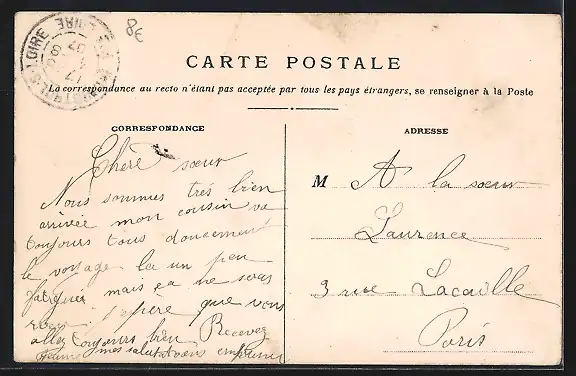 8€
LOIRE
CARTE POSTALE
La correspondance au recto n'étant pas acceptée par tous les pays étrangers, se renseigner à la Poste
CORRESPONDANCE
Chère soeur
Nous sommes très bien
arrivée mon cousin va
toujours tous doucement
le voyage la un peu
fatigué mais ça ne sera
j'espère que vous
allez toujours bien Recevez
mes salutations
ADRESSE
M A la soeur
Laurence
3 rue Lacaille
Paris